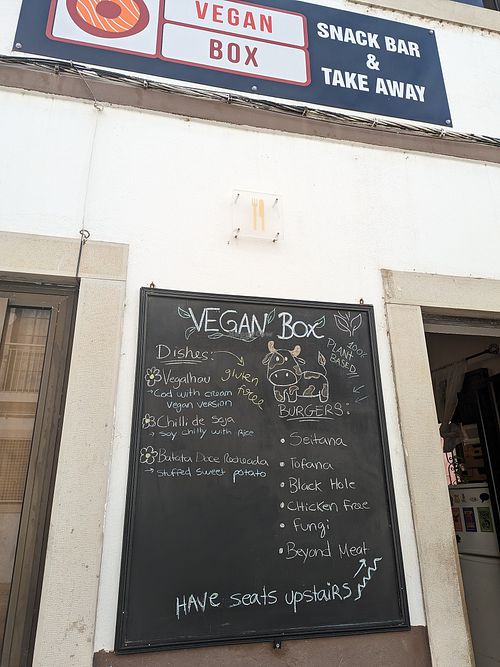 VEGAN
BOX
SNACK BAR
&
TAKE AWAY
VEGAN BOX
100%
PLANT
BASED
Dishes:
gluten
free
Vegalhau
Cod with cream
vegan version
Chilli de Soja
soy chilly with rice
Batata Doce Recheada
stuffed sweet potato
BURGERS:
• Seitana
• Tofana
• Black Hole
• Chicken Free
• Fungi
• Beyond Meat
HAVE seats upstairs